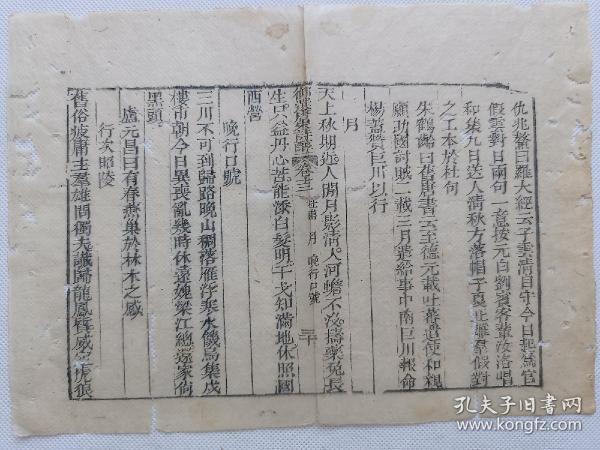 仇兆鰲曰羅大經云子雲清自守今日起為官
假雲對日兩句一意按元白劉賓客輩汝洛唱
和集九日送人清秋方落帽子夏正離羣假對
之工本於杜句
朱鶴齡曰舊唐書云至德元載吐蕃遣使和親
願助國討賊二載三月遣給事中南巨川報命
楊蓋贊巨川以行
月
天上秋期近人間月影清入河蟾不沒擣藥兔長
卷之三 杜詩 月 晚行口號 三十
生只益丹心苦能添白髮明干戈知滿地休照國
西營
晚行口號
三川不可到歸路晚山稠落雁浮寒水饑烏集戍
樓市朝今日異喪亂幾時休遠愧梁江總還家尚
黑頭
盧元昌曰有春燕巢於林木之感
行次昭陵
舊俗疲庸主羣雄問獨夫讖歸龍鳳質威定虎狼
孔夫子旧書网
www.kongfz.com